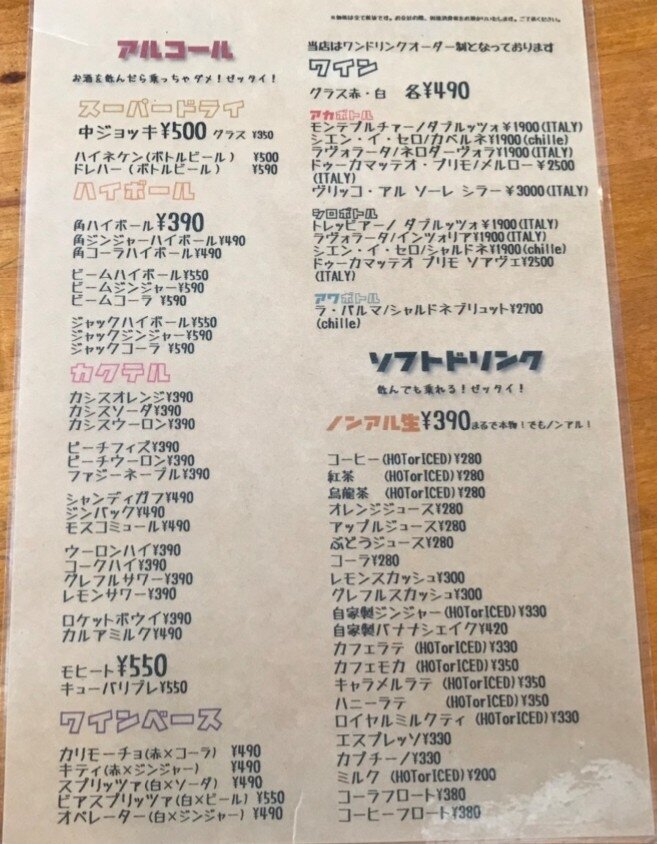 ※価格は全て税抜です。お会計の際、別途消費税をお預かりいたします。ご了承ください。
アルコール
お酒を飲んだら乗っちゃダメ！ゼッタイ！
スーパードライ
中ジョッキ¥500 グラス ¥350
ハイネケン(ボトルビール) ¥500
ドレハー(ボトルビール) ¥590
ハイボール
角ハイボール¥390
角ジンジャーハイボール¥490
角コーラハイボール¥490
ビームハイボール¥550
ビームジンジャー¥590
ビームコーラ ¥590
ジャックハイボール¥550
ジャックジンジャー¥590
ジャックコーラ ¥590
カクテル
カシスオレンジ¥390
カシスソーダ¥390
カシスウーロン¥390
ピーチフィズ¥390
ピーチウーロン¥390
ファジーネーブル¥390
シャンディガフ¥490
ジンバック¥490
モスコミュール¥490
ウーロンハイ¥390
コークハイ¥390
グレフルサワー¥390
レモンサワー¥390
ロケットボウイ¥390
カルアミルク¥490
モヒート¥550
キューバリブレ¥550
ワインベース
カリモーチョ(赤×コーラ) ¥490
キティ(赤×ジンジャー) ¥490
スプリッツァ(白×ソーダ) ¥490
ビアスプリッツァ(白×ビール) ¥550
オペレーター(白×ジンジャー) ¥490
当店はワンドリンクオーダー制となっております
ワイン
グラス赤・白 各¥490
アカボトル
モンテプルチァーノ/ダブルッツォ¥1900(ITALY)
シエン・イ・セロ/カベルネ¥1900(chille)
ラヴォラータ/ネロダーヴォラ¥1900(ITALY)
ドゥーカマッテオ・プリモ/メルロー¥2500
(ITALY)
ヴリッコ・アル ソーレ シラー ¥3000(ITALY)
シロボトル
トレッビアーノ ダブルッツォ¥1900(ITALY)
ラヴォラータ/インツォリア¥1900(ITALY)
シエン・イ・セロ/シャルドネ¥1900(chille)
ドゥーカマッテオ プリモ ソアヴェ¥2500
(ITALY)
アワボトル
ラ・パルマ/シャルドネブリュット¥2700
(chille)
ソフトドリンク
飲んでも乗れる！ゼッタイ！
ノンアル生¥390まるで本物！でもノンアル！
コーヒー(HOTorICED)¥280
紅茶 (HOTorICED)¥280
烏龍茶 (HOTorICED)¥280
オレンジジュース¥280
アップルジュース¥280
ぶどうジュース¥280
コーラ¥280
レモンスカッシュ¥300
グレフルスカッシュ¥300
自家製ジンジャー(HOTorICED)¥330
自家製バナナシェイク¥420
カフェラテ (HOTorICED)¥330
カフェモカ (HOTorICED)¥350
キャラメルラテ (HOTorICED)¥350
ハニーラテ (HOTorICED)¥350
ロイヤルミルクティ(HOTorICED)¥330
エスプレッソ¥330
カプチーノ¥330
ミルク (HOTorICED)¥200
コーラフロート¥380
コーヒーフロート¥380